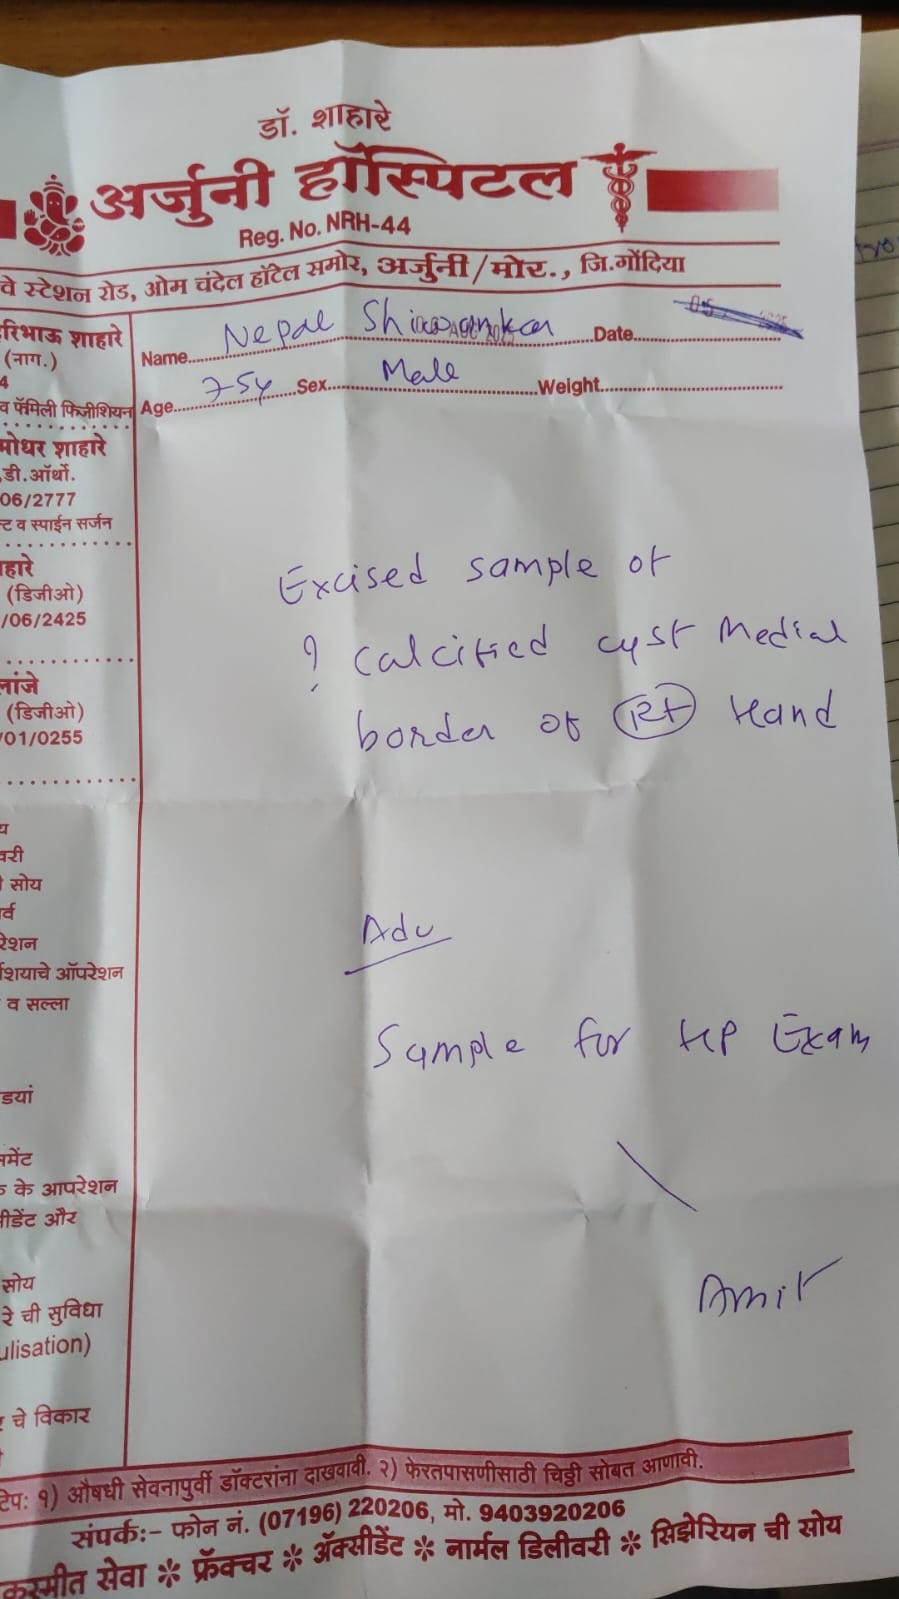 डॉ. शाहारे
अर्जुनी हॉस्पिटल
Reg. No. NRH-44
वे स्टेशन रोड, ओम चंदेल हॉटेल समोर, अर्जुनी/मोर., जि.गोंदिया
रिभाऊ शाहारे
(नाग.)
4
व फॅमिली फिजीशियन
मोधर शाहारे
.डी.ऑर्थो.
06/2777
ट व स्पाईन सर्जन
हारे
(डिजीओ)
/06/2425
लांजे
(डिजीओ)
/01/0255
य
वरी
सोय
र्व
रेशन
शियाचे ऑपरेशन
व सल्ला
डयां
नमेंट
के आपरेशन
ीडेंट और
सोय
रे ची सुविधा
ulisation)
चे विकार
Name Nepal Date
Age 75y Sex Male Weight
Excised sample of
? calcified cyst Medial
border of Rt Hand
Adv
Sample for HP Exam
Amit
टिप: १) औषधी सेवनापुर्वी डॉक्टरांना दाखवावी. २) फेरतपासणीसाठी चिठ्ठी सोबत आणावी.
संपर्क:- फोन नं. (07196) 220206, मो. 9403920206
कस्मीत सेवा ✻ फ्रॅक्चर ✻ ॲक्सीडेंट ✻ नार्मल डिलीवरी ✻ सिझेरियन ची सोय